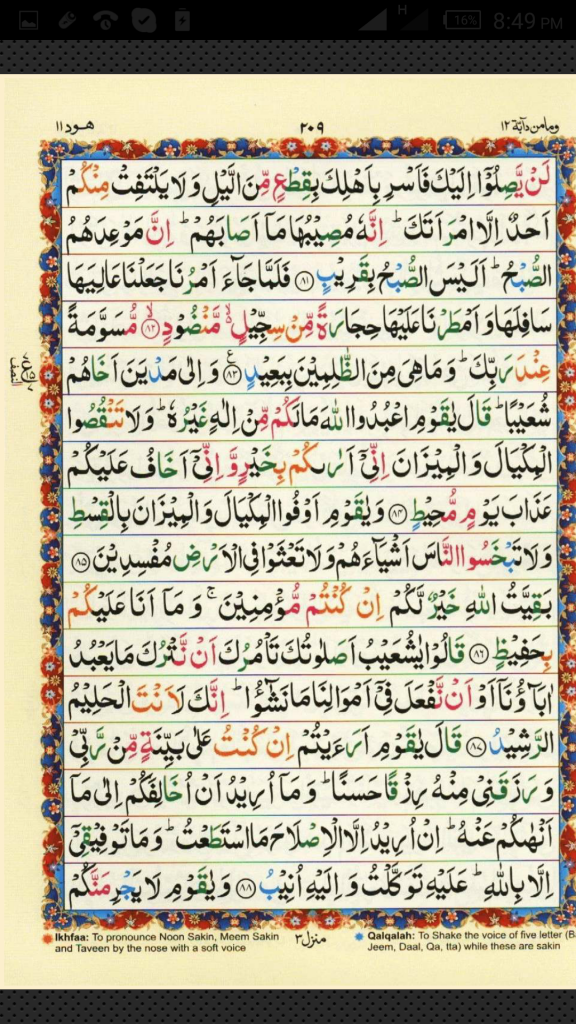 H 16% 8:49 PM
وما من دآبة ١٢ ٢٠٩ هود ١١
لَنْ يَّصِلُوْٓا اِلَيْكَ فَاَسْرِ بِاَهْلِكَ بِقِطْعٍ مِّنَ الَّيْلِ وَلَا يَلْتَفِتْ مِنْكُمْ
اَحَدٌ اِلَّا امْرَاَتَكَ ؕ اِنَّهٗ مُصِيْبُهَا مَاۤ اَصَابَهُمْ ؕ اِنَّ مَوْعِدَهُمُ
الصُّبْحُ ؕ اَلَيْسَ الصُّبْحُ بِقَرِيْبٍ ﴿۸۱﴾ فَلَمَّا جَآءَ اَمْرُنَا جَعَلْنَا عَالِيَهَا
سَافِلَهَا وَاَمْطَرْنَا عَلَيْهَا حِجَارَةً مِّنْ سِجِّيْلٍ ۙ۬ مَّنْضُوْدٍ ۙ﴿۸۲﴾ مُّسَوَّمَةً
عِنْدَ رَبِّكَ ؕ وَمَا هِيَ مِنَ الظّٰلِمِيْنَ بِبَعِيْدٍ ﴿۸۳﴾ وَاِلٰى مَدْيَنَ اَخَاهُمْ
شُعَيْبًا ؕ قَالَ يٰقَوْمِ اعْبُدُوا اللّٰهَ مَا لَكُمْ مِّنْ اِلٰهٍ غَيْرُهٗ ؕ وَلَا تَنْقُصُوا
الْمِكْيَالَ وَالْمِيْزَانَ اِنِّيْۤ اَرٰىكُمْ بِخَيْرٍ وَّ اِنِّيْۤ اَخَافُ عَلَيْكُمْ
عَذَابَ يَوْمٍ مُّحِيْطٍ ﴿۸۴﴾ وَيٰقَوْمِ اَوْفُوا الْمِكْيَالَ وَالْمِيْزَانَ بِالْقِسْطِ
وَلَا تَبْخَسُوا النَّاسَ اَشْيَآءَهُمْ وَلَا تَعْثَوْا فِي الْاَرْضِ مُفْسِدِيْنَ ﴿۸۵﴾
بَقِيَّتُ اللّٰهِ خَيْرٌ لَّكُمْ اِنْ كُنْتُمْ مُّؤْمِنِيْنَ ۚ وَمَاۤ اَنَا عَلَيْكُمْ
بِحَفِيْظٍ ﴿۸۶﴾ قَالُوْا يٰشُعَيْبُ اَصَلٰوتُكَ تَاْمُرُكَ اَنْ نَّتْرُكَ مَا يَعْبُدُ
اٰبَآؤُنَاۤ اَوْ اَنْ نَّفْعَلَ فِيْۤ اَمْوَالِنَا مَا نَشٰٓؤُا ؕ اِنَّكَ لَاَنْتَ الْحَلِيْمُ
الرَّشِيْدُ ﴿۸۷﴾ قَالَ يٰقَوْمِ اَرَءَيْتُمْ اِنْ كُنْتُ عَلٰى بَيِّنَةٍ مِّنْ رَّبِّيْ
وَرَزَقَنِيْ مِنْهُ رِزْقًا حَسَنًا ؕ وَمَاۤ اُرِيْدُ اَنْ اُخَالِفَكُمْ اِلٰى مَاۤ
اَنْهٰىكُمْ عَنْهُ ؕ اِنْ اُرِيْدُ اِلَّا الْاِصْلَاحَ مَا اسْتَطَعْتُ ؕ وَمَا تَوْفِيْقِيْۤ
اِلَّا بِاللّٰهِ ؕ عَلَيْهِ تَوَكَّلْتُ وَاِلَيْهِ اُنِيْبُ ﴿۸۸﴾ وَيٰقَوْمِ لَا يَجْرِمَنَّكُمْ
منزل ٣
Ikhfaa: To pronounce Noon Sakin, Meem Sakin
and Taveen by the nose with a soft voice
Qalqalah: To Shake the voice of five letter (B
Jeem, Daal, Qa, tta) while these are sakin